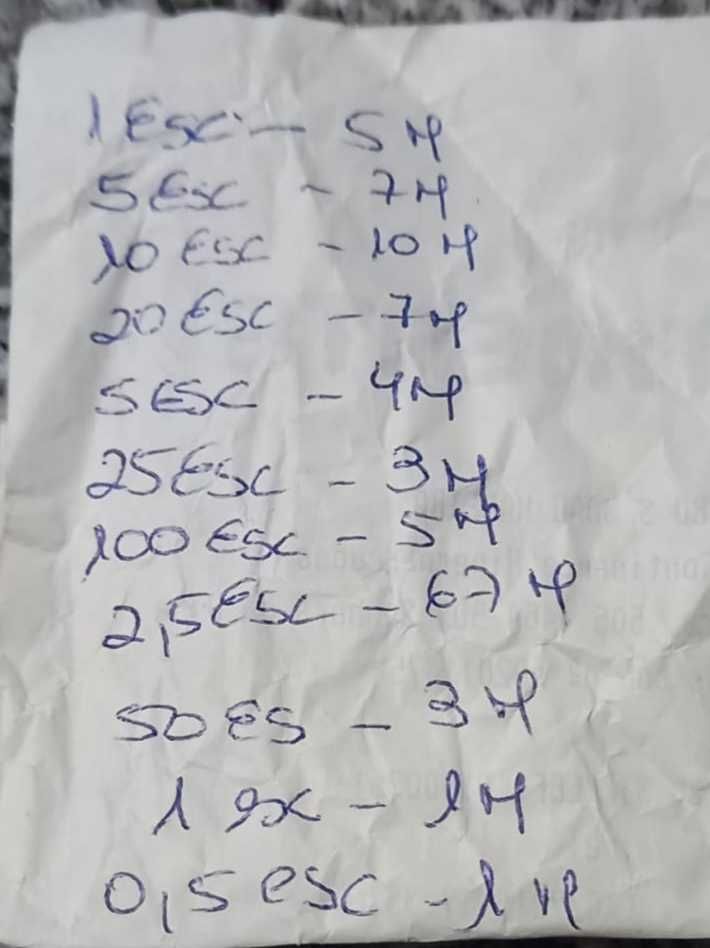 1 ESC - 5 M
5 ESC - 7 M
10 ESC - 10 M
20 ESC - 7 M
5 ESC - 4 M
25 ESC - 3 M
100 ESC - 5 M
2,5 ESC - 67 M
50 ES - 3 M
1 esc - 1 M
0,5 esc - 1 M